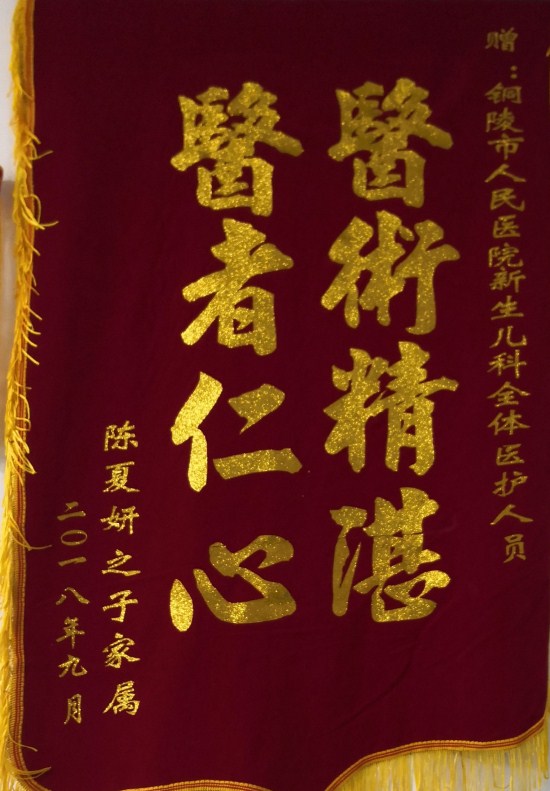 赠：铜陵市人民医院新生儿科全体医护人员
醫術精湛
醫者仁心
陈夏妍之子家属
二〇一八年九月